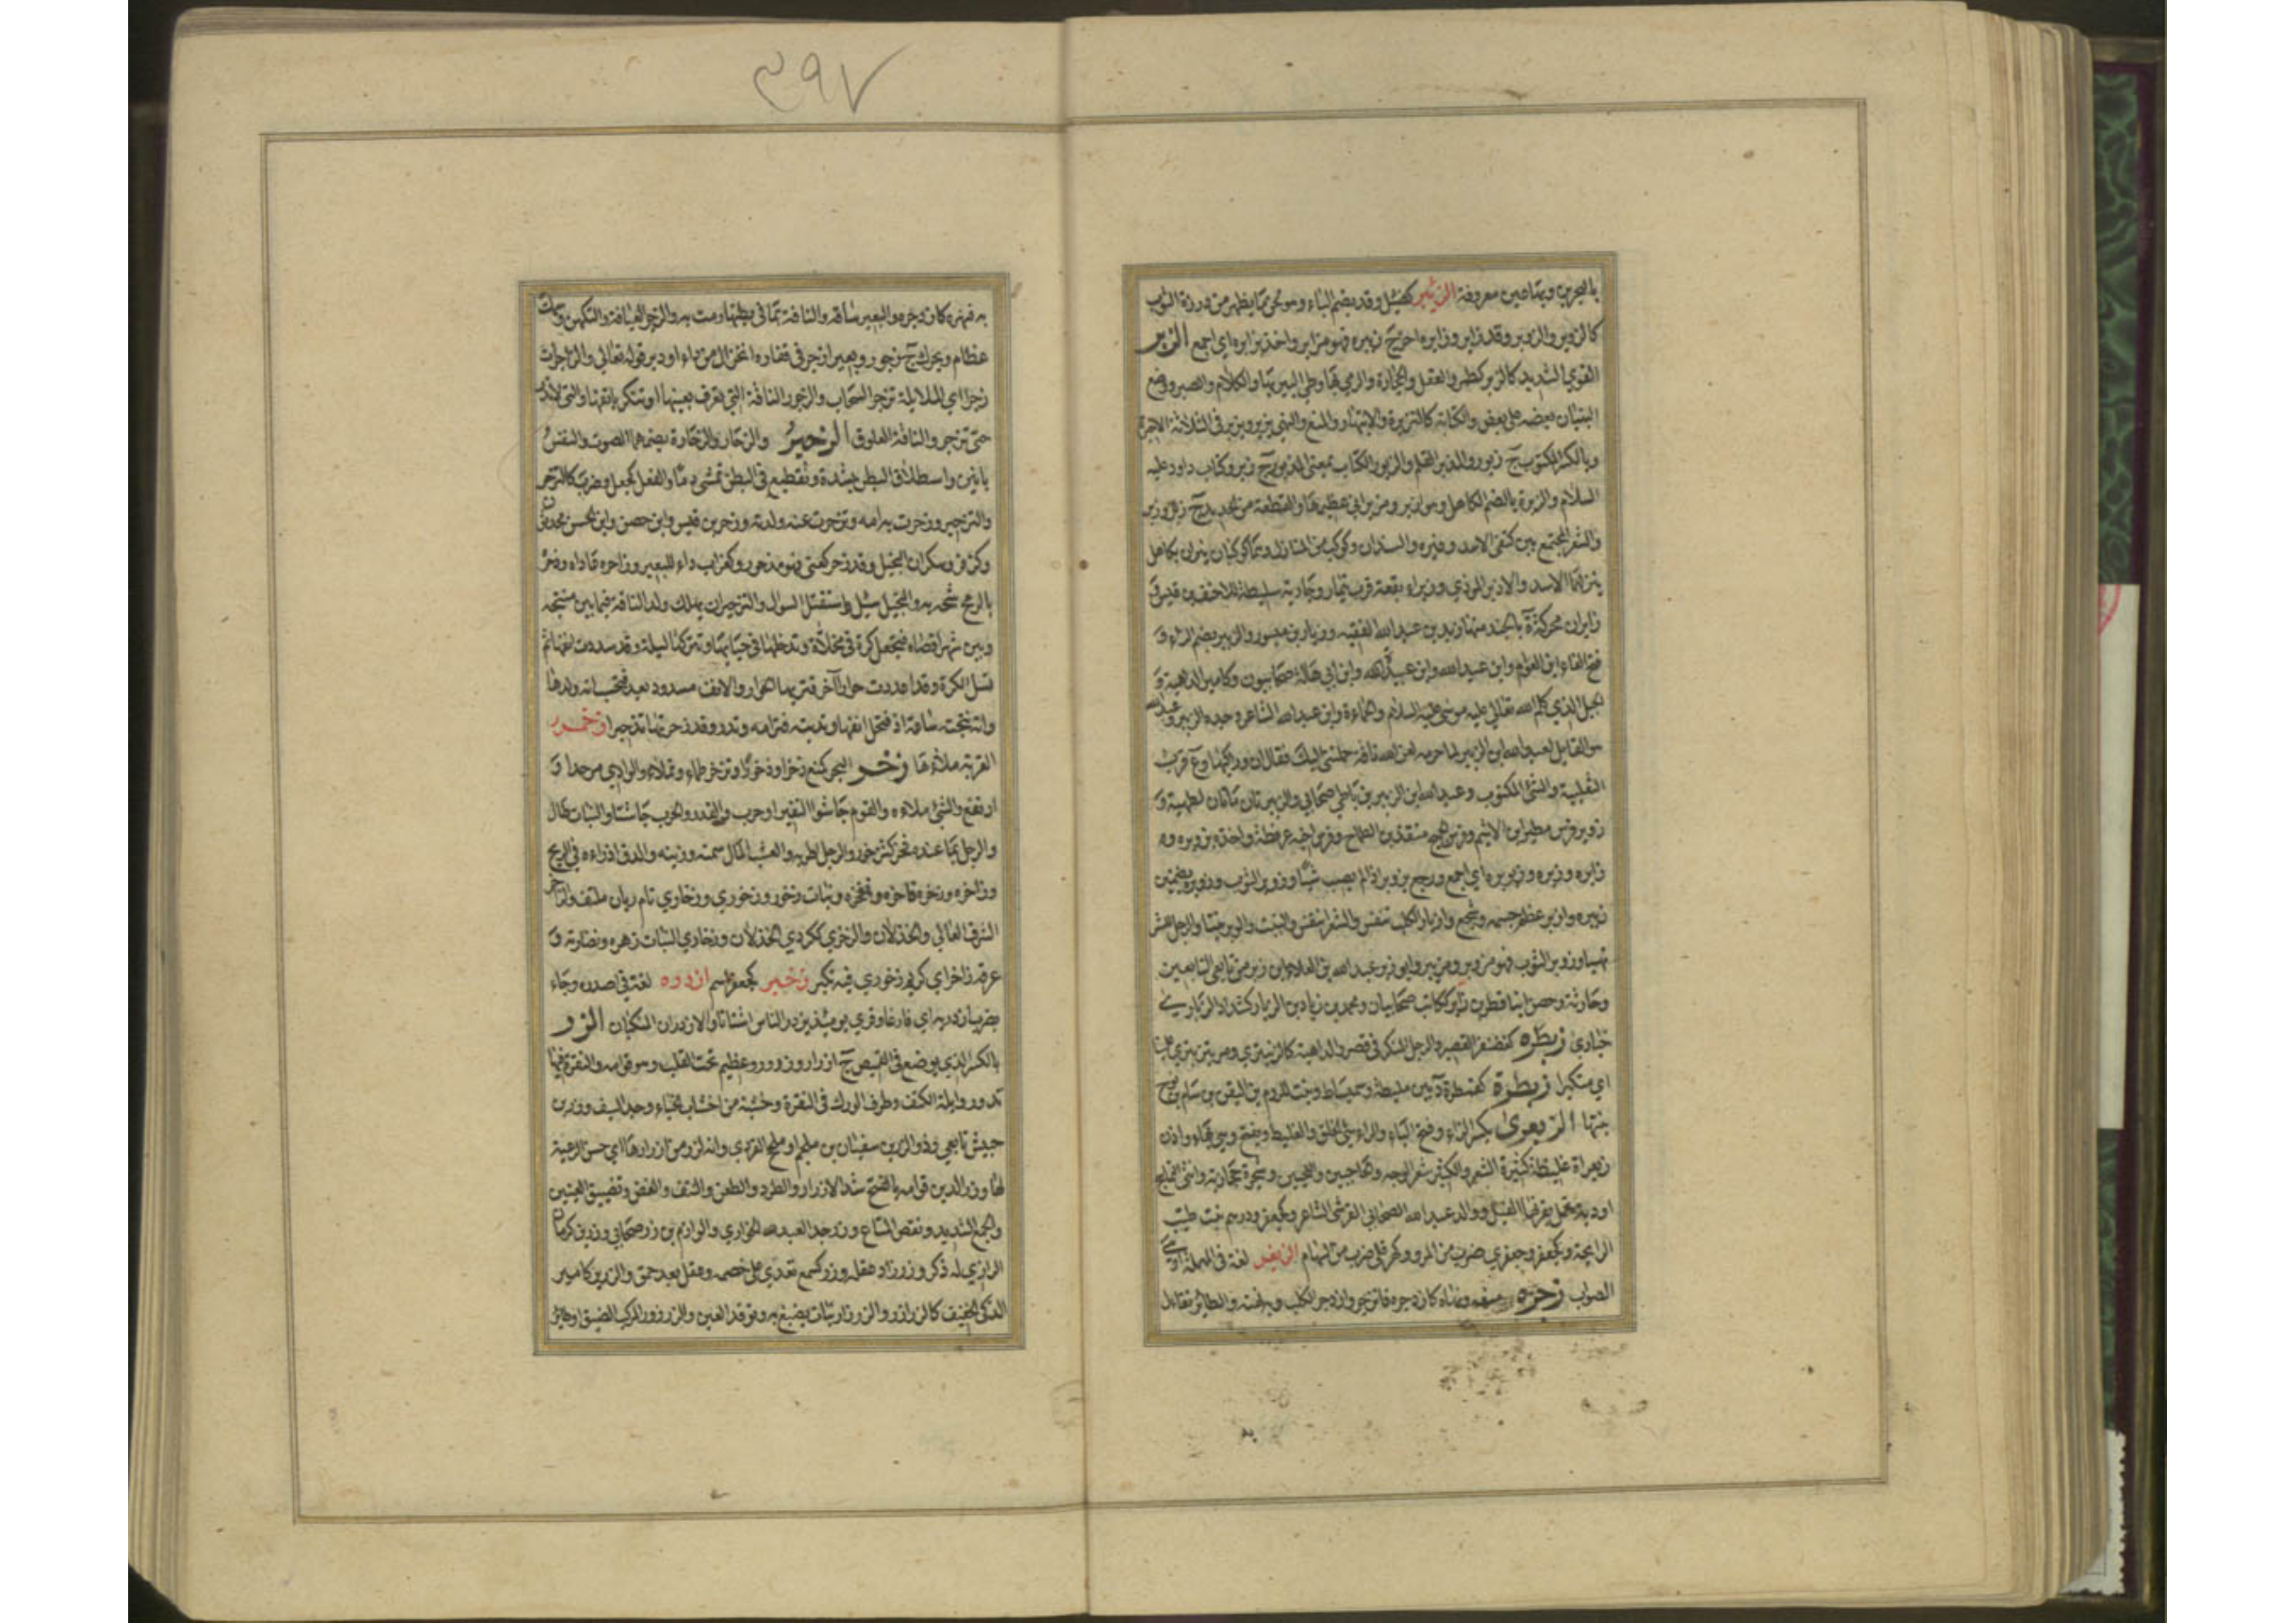 ٢٩٧
بالبحرين وبتاءين معروفة الزئبر كضئبل وقد يضم الباء وهو محن مما يظهر من درزة الثوب
كالزوبر والزوبر وقد زابر وزابره اخرج زئبره فهو مزابر واخذ بزابره اي اجمع الزبر
القوي الشديد كالزبر كطمر والعقل والحجارة والرمي بها وطي البير بها والكلام والصبر ووضع
البنيان بعضه على بعض والكتابة كالتزبرة والانتهار والمنع والنهي يزبر ويزبر في الثلاثة الاخيرة
وبالكسر المكتوب ج زبور والمزبر القلم والزبور الكتاب بمعنى المزبور ج زبر وكتاب داود عليه
السلام والزبرة بالضم الكاهل وهو ازبر ومزبراني عظيمها والقطعة من الحديد ج زبر وزبر
والشعر المجتمع بين كتفي الاسد وغيره والسندان وكوكب من المنازل وهما كوكبان نيران بكاهل
ينزلهما الاسد والازبر الموذي وزبراء بقعة قرب تيماء وجارية سليطة للاحنف بن قيس و
زبران محركة ة بالجند منها زيد بن عبدالله الفقيه وزبار بن ميسور والزبير بضم الزاء و
فتح الباء ابن العوام وابن عبدالله وابن عبيدالله وابن ابي هالة صحابيون وكامير الداهية و
الجبل الذي كلم الله تعالى عليه موسى عليه السلام والحماءة وابن عبدالله الشاعر وجده الزبير وعبدالله
هو القايل لعبدالله ابن الزبير لما حرمه لعن الله ناقة حملتني اليك فقال ان وراكبها وع قرب
الثعلبية والشئ المكتوب وعبدالله ابن الزبير بن باطي صحابي والزبيرتان ماءتان لطهية و
زوبر فرس مطير ابن الاشيم وفرس الجميح منقذ بن الطماح وفرس اخيه عرفطة واخذه بزوبره و
زابره وزبره وزبوبره اي اجمع ورجع بزوبر اذا لم يصب شيئا وزوبر الثوب وزوبره بضمتين
زبيره وازبر عظم جسمه وشجع وازبار الكلب تنفش والشعر انتفش والنبت والوبر نبتا والرجل للشر
تهيا وزوبر الثوب فهو مزوبر ومزيبر وابو زبر عبدالله بن العلاء ابن زبر من تابعي التابعين
وحارثة وحصن ابنا قطن بن زابر ككاتب صحابيان ومحمد بن زياد بن الزبار كشداد الزباري
خباري زبطره كغضنفر القصيرة والرجل المنكر في قصر والداهية كالزبنتري ومر يتزبتر علينا
اي متكبرا زبطرة كقمطرة د بين ملطية وسميساط وبنت للروم بن اليقن بن سام بن نوح
بنتها الزبعرى بكسر الزاء وفتح الباء والراء سيئ الخلق والغليظ ويفتح وهي بهاء واذن
زبعراة غليظة كثيرة الشعر والكثير شعر الوجه والحاجبين واللحيين وشجرة حجازية وانثى التماسيح
او دابة تحمل بقرنها الفيل ووالد عبدالله الصحابي القرشي الشاعر وكجعفر ودرهم نبت طيب
الرايحة وكجعفر وجعفري ضرب من المرو وكهرقلي ضرب من السهام الزبغر لغة في المهملة او هي
الصواب زجره منعه ونهاه كازدجره فانزجر وازدجر الكلب وبه نهنهه والطائر تفاءل
به فنهره كازدجره والبعير ساقه والناقة بما في بطنها رمت به والزجر العيافة والتكهن وسمك
عظام ويحرك ج زجور وبعير ازجر في فقاره انخزال من داء او دبر قوله تعالى والزاجرات
زجرا اي الملائكة تزجر السحاب والزجور الناقة التي تعرف بعينها وتنكر بانفها والتي لا تدر
حتى تزجر والناقة العلوق الزحير والزحار والزحارة بضمهما الصوت والنفس
بانين واستطلاق البطن بشدة وتقطيع في البطن تمشي دما والفعل كجعل وضرب كالتزحر
والتزحير وزحرت به امه وتزحرت عنه ولدته وزحر بن قيس وابن حصن وابن الحسن محدثون
وكزفر وسكران البخيل وقد زحر كعني فهو مزحور وكغراب داء للبعير وزاحره قاداه وزحره
بالرمح شجه به والبخيل سئل واستقثل السوال والتزحيران يهلك ولد الناقة فيما بين منتجه
وبين شهر اقصاه فتجعل كرة في مخلاة وتدخلها في حيائها وتتركها ليلة وقد سددت انفها ثم
تسل الكرة وقد اعددت حوارا آخر فتريها الحوار والانف مسدود بعد فتحسبه انه ولدها
وانه نتجته ساعة اذ فتحل انفها وتدنيه فترامه وتدر وقد زحرتها تزحيرا زحمر
القربة ملاءها زخر البحر كمنع زخرا وزخورا وتزخر طما وتملاء والوادي مد جدا و
ارتفع والشئ ملاءه والقوم جاشوا لنفير او حرب والقدر والحرب جاشتا والنبات طال
والرجل بما عنده فخر كتزخور والرجل اطربه والعشب المال سمنه وزينه والدق اذراه في الريح
وزاخره وزخره فاخره وفخره ونبات زخور وزخوري وزخاري تام ريان ملتف والزاخر
الشرف العالي والجذلان والزخري ككردي الجذلان وزخاري النبات زهره ونضارته و
عرقه زاخر اي كريم زخوري فيه تكبر زخبر كجعفر اسم ازدره لغة في اصدره وجاء
يضرب ازدريه اي فارغا وقرئ يومئذ يزدر الناس اشتاتا والازدران المنكبان الزر
بالكسر الذي يوضع في القميص ج ازرار وزرور وعظيم تحت القلب وهو قوامه والنقرة فيها
تدور وابلة الكتف وطرف الورك في النقرة وخشبة من اخشاب الخباء وحد السيف وزر بن
حبيش تابعي وذو الزرين سفيان بن ملجم او ملحم القردي وانه لزر من ازرارها اي حسن الرعية
لها وزر الدين قوامه بالفتح شد الازرار والطرد والطعن والنتف والعض وتضييق العينين
والجمع الشديد ونقض المتاع وزر جد لعبدالله الخواري والوازم بن زر صحابي وزر بن كرمان
الرازي له ذكر وزر زاد عقله وزر كسمع تعدى على خصمه وعقل بعد حمق والزرير كامير
الذكي الخفيف كالزرازر والزرزار نبات يصبغ به وتوقد العين والزرزور المركب الضيق او طائر